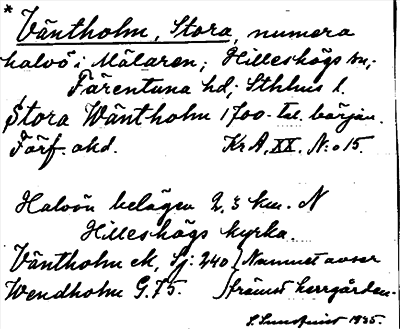 * Väntholm, Stora, numera
halvö i Mälaren; Hilleshögs sn,
Färentuna hd, Sthlms l.
Stora Wäntholm 1700-tal. början.
Förf. okd. KrA. XX. N:o 15.
Halvön belägen 2,3 km. N
Hilleshögs kyrka.
Väntholm ek, Sj: 240 } Namnet avser
Wendholm G. 75. } främst herrgården.
S. Sundquist 1935.